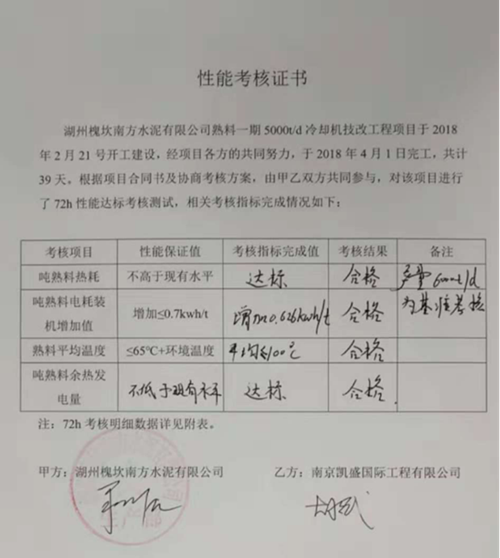 性能考核证书
湖州槐坎南方水泥有限公司熟料一期5000t/d冷却机技改工程项目于2018
年2月21号开工建设，经项目各方的共同努力，于2018年4月1日完工，共计
39天。根据项目合同书及协商考核方案，由甲乙双方共同参与，对该项目进行
了72h性能达标考核测试，相关考核指标完成情况如下：
考核项目 性能保证值 考核指标完成值 考核结果 备注
吨熟料热耗 不高于现有水平 达标 合格 产量6000t/d
吨熟料电耗装
机增加值 增加≤0.7kwh/t 增加0.626kwh/t 合格 为基准考核
熟料平均温度 ≤65℃+环境温度 平均≤100℃ 合格
吨熟料余热发
电量 不低于现有水平 达标 合格
注：72h考核明细数据详见附表。
甲方：湖州槐坎南方水泥有限公司 乙方：南京凯盛国际工程有限公司